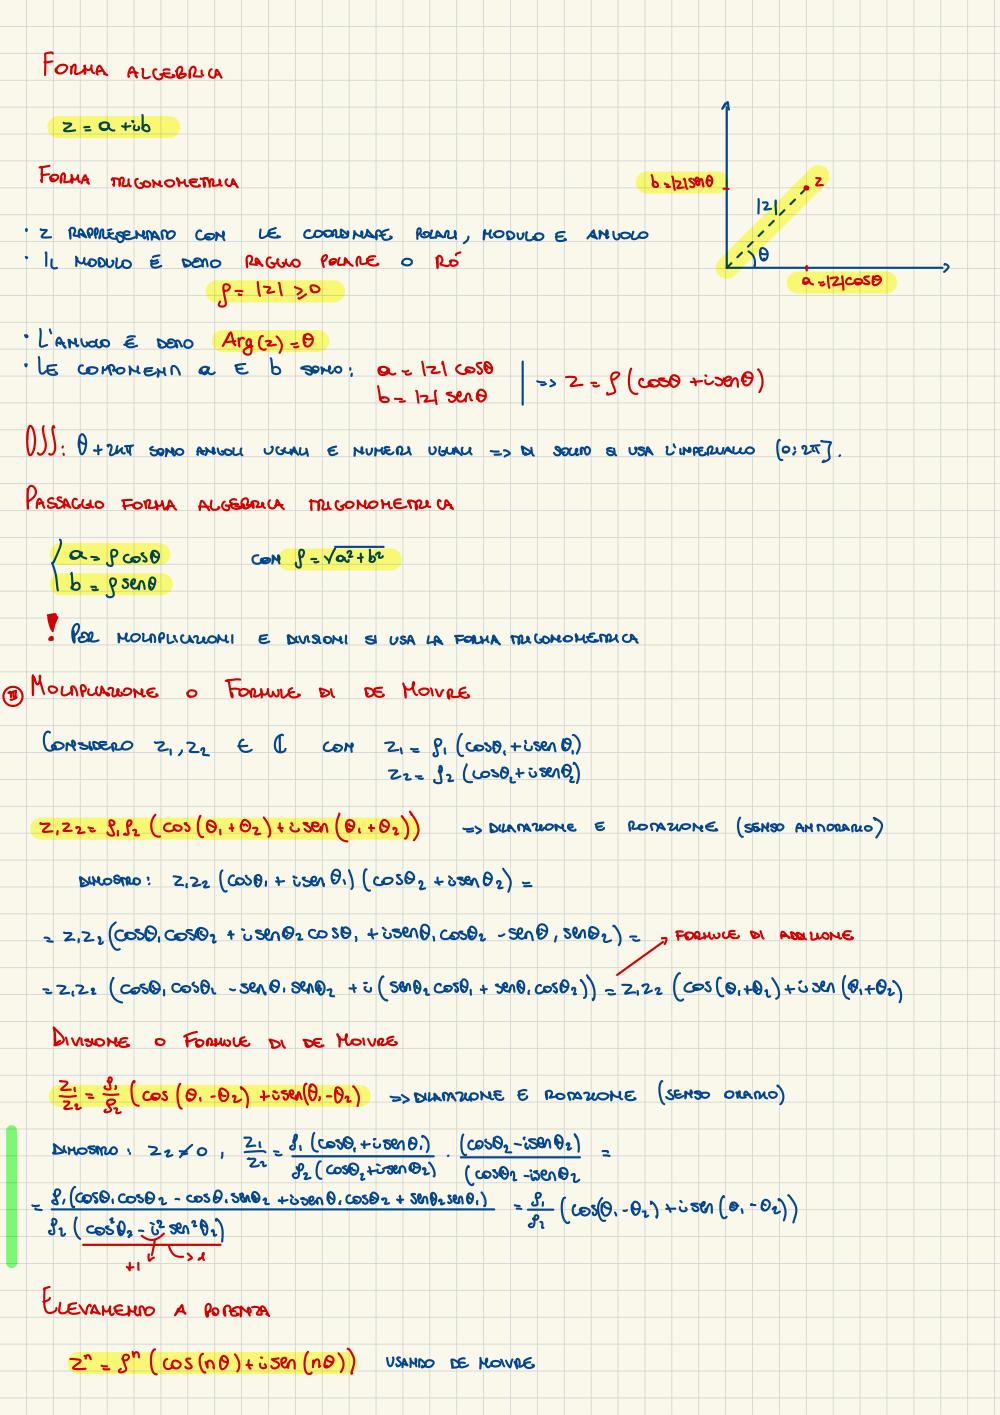 FORMA ALGEBRICA
z = a + ib
FORMA TRIGONOMETRICA
b = |z| senθ
z
|z|
θ
a = |z| cosθ
· z RAPPRESENTATO CON LE COORDINATE POLARI, MODULO E ANGOLO
· IL MODULO È DETTO RAGGIO POLARE O RÓ
ρ = |z| ⩾ 0
· L'ANGOLO È DETTO Arg(z) = θ
· LE COMPONENTI a E b SONO: a = |z| cosθ
b = |z| senθ
=> z = ρ (cosθ + isenθ)
OSS: θ + 2kπ SONO ANGOLI UGUALI E NUMERI UGUALI => DI SOLITO SI USA L'INTERVALLO [0; 2π].
PASSAGGIO FORMA ALGEBRICA TRIGONOMETRICA
{ a = ρ cosθ CON ρ = √a² + b²
b = ρ senθ
! PER MOLTIPLICAZIONI E DIVISIONI SI USA LA FORMA TRIGONOMETRICA
MOLTIPLICAZIONE O FORMULE DI DE MOIVRE
CONSIDERO z₁, z₂ ∈ ℂ CON z₁ = ρ₁ (cosθ₁ + isenθ₁)
z₂ = ρ₂ (cosθ₂ + isenθ₂)
z₁z₂ = ρ₁ρ₂ (cos(θ₁ + θ₂) + isen(θ₁ + θ₂)) => DILATAZIONE E ROTAZIONE (SENSO ANTIORARIO)
DIMOSTRO: z₁z₂ (cosθ₁ + isenθ₁) (cosθ₂ + isenθ₂) =
= z₁z₂ (cosθ₁ cosθ₂ + isenθ₂ cosθ₁ + isenθ₁ cosθ₂ - senθ₁ senθ₂) = FORMULE DI ADDIZIONE
= z₁z₂ (cosθ₁ cosθ₂ - senθ₁ senθ₂ + i(senθ₂ cosθ₁ + senθ₁ cosθ₂)) = z₁z₂ (cos(θ₁+θ₂) + isen(θ₁+θ₂)
DIVISIONE O FORMULE DI DE MOIVRE
z₁/z₂ = ρ₁/ρ₂ (cos(θ₁ - θ₂) + isen(θ₁ - θ₂) => DILATAZIONE E ROTAZIONE (SENSO ORARIO)
DIMOSTRO: z₂ ≠ 0, z₁/z₂ = ρ₁ (cosθ₁ + isenθ₁) / ρ₂ (cosθ₂ + isenθ₂) · (cosθ₂ - isenθ₂) / (cosθ₂ - isenθ₂ =
= ρ₁ (cosθ₁ cosθ₂ - cosθ₁ senθ₂ + isenθ₁ cosθ₂ + senθ₂ senθ₁) / ρ₂ (cos²θ₂ - i² sen²θ₂) = ρ₁/ρ₂ (cos(θ₁ - θ₂) + isen(θ₁ - θ₂))
+1
ELEVAMENTO A POTENZA
zⁿ = ρⁿ (cos(nθ) + isen(nθ)) USANDO DE MOIVRE